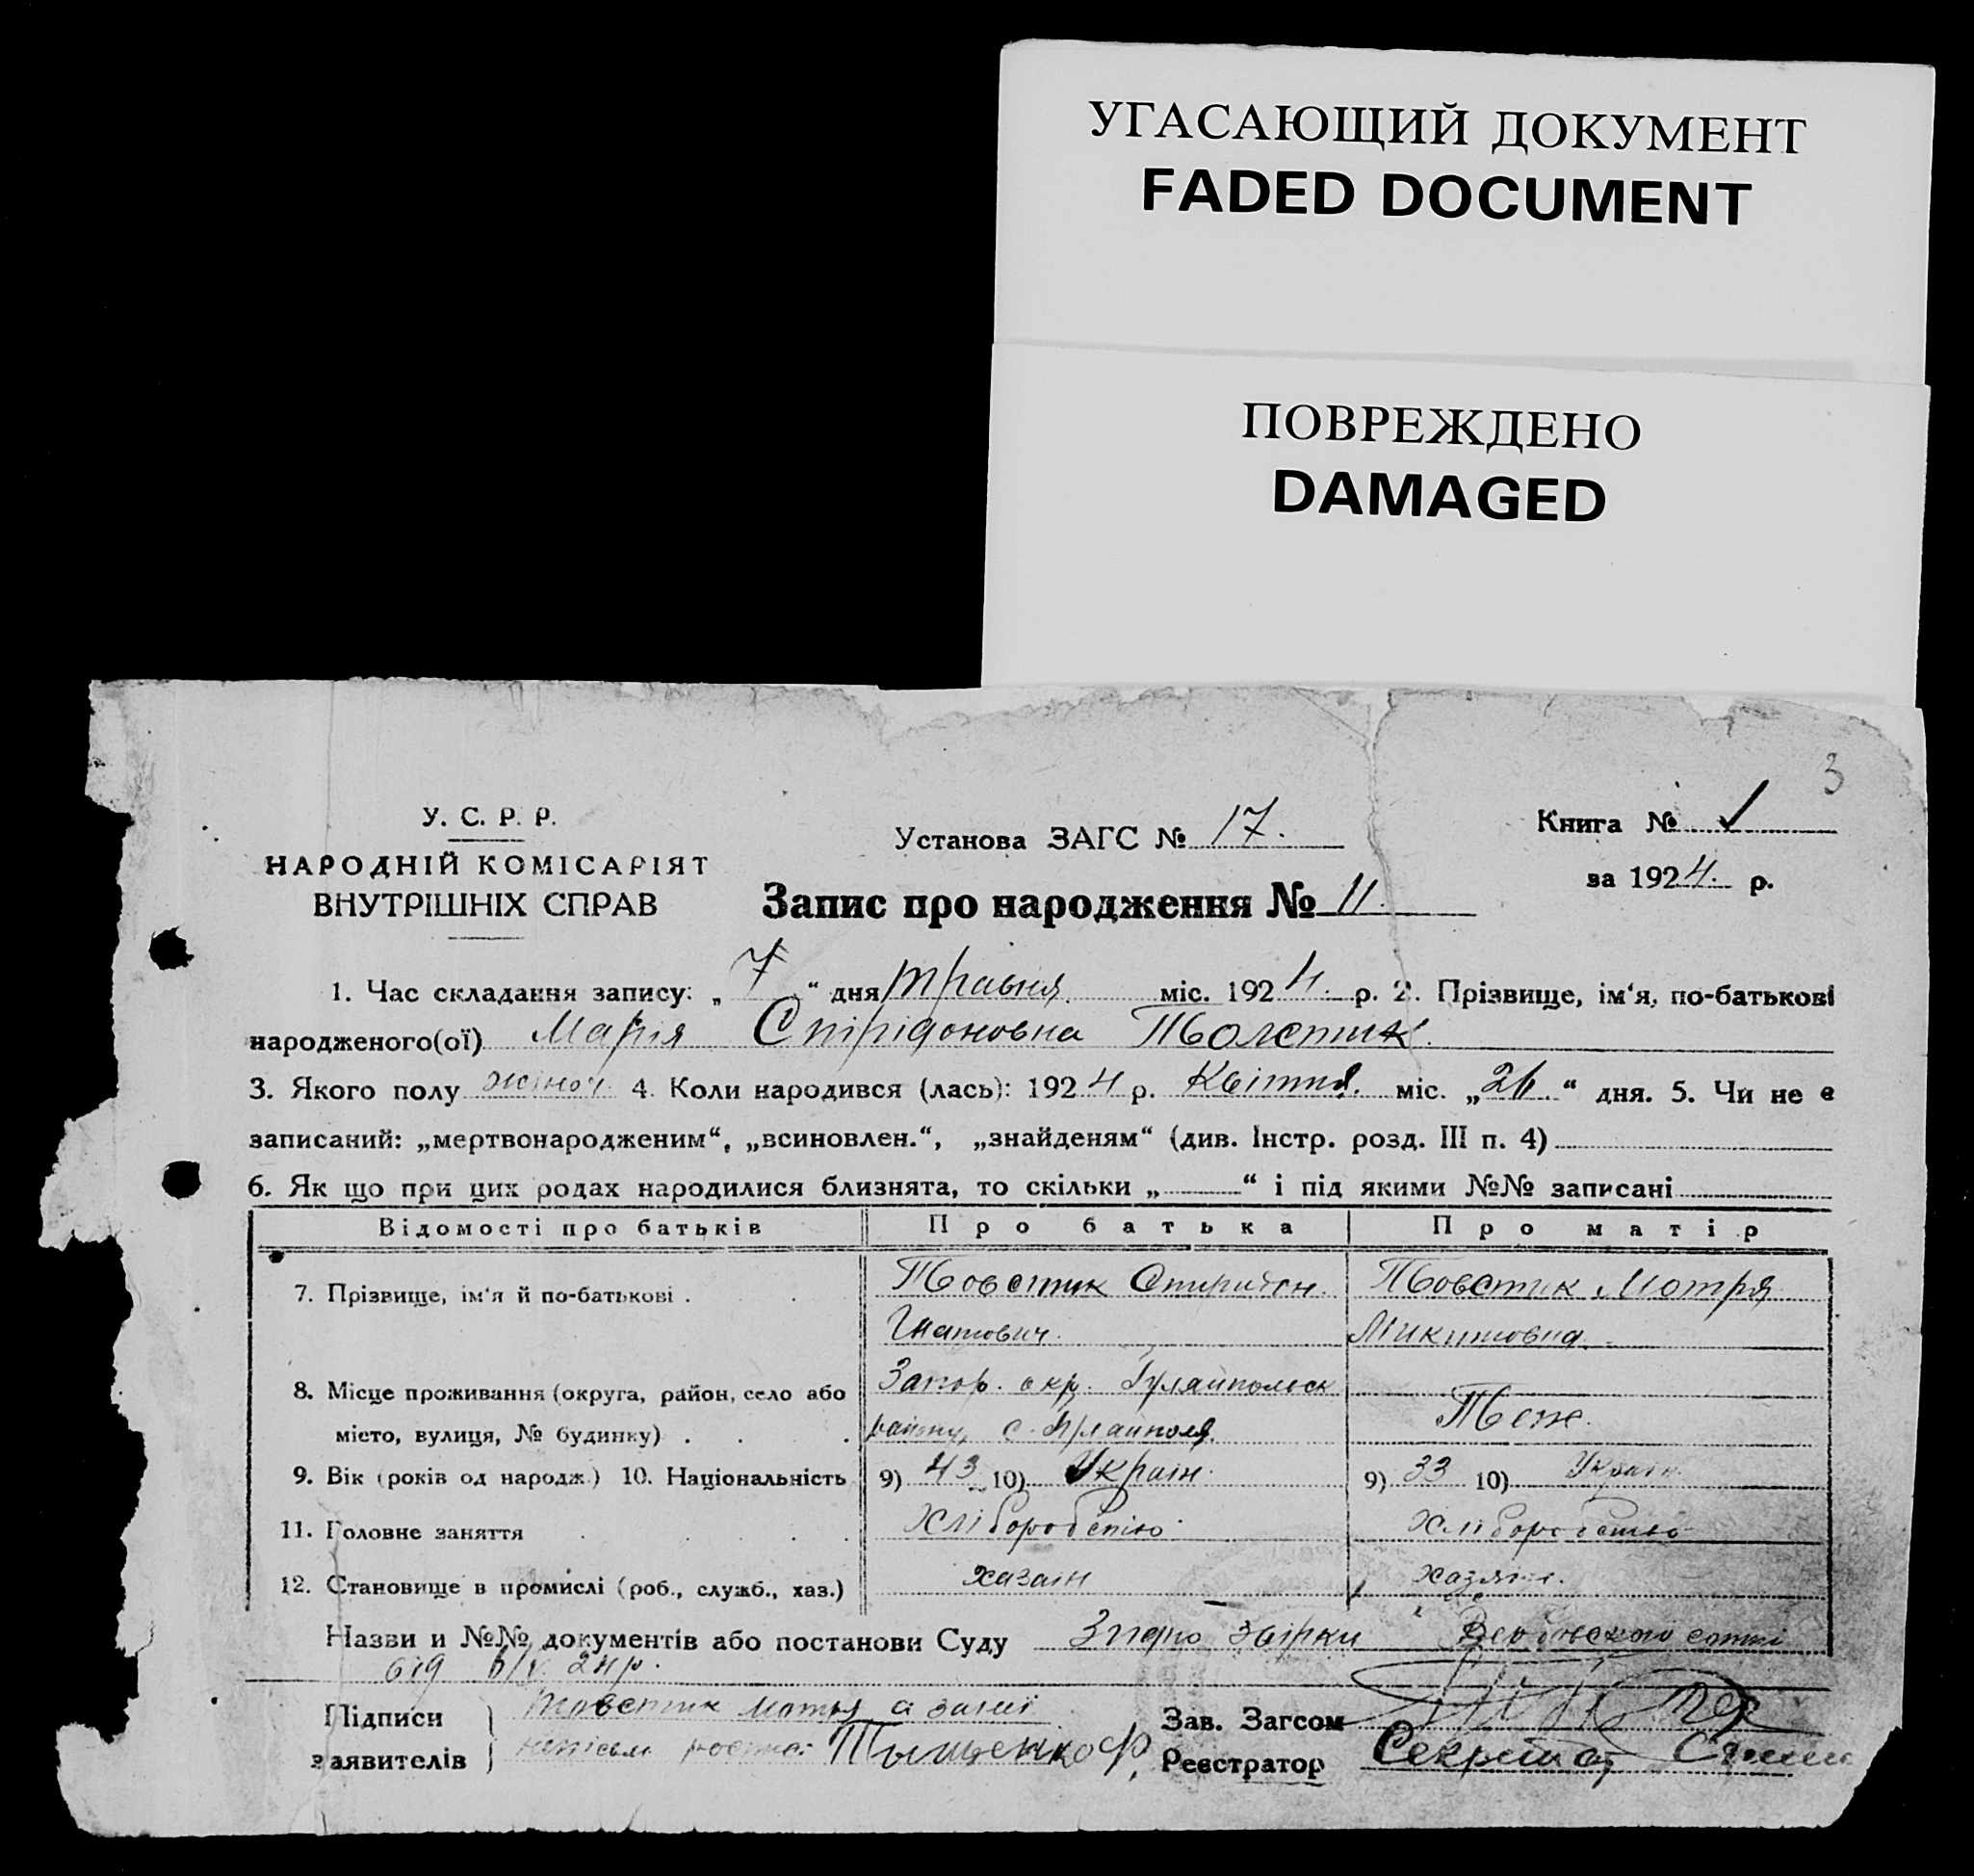 УГАСАЮЩИЙ ДОКУМЕНТ
FADED DOCUMENT
ПОВРЕЖДЕНО
DAMAGED
3
У. С. Р. Р.
НАРОДНІЙ КОМІСАРІЯТ
ВНУТРІШНІХ СПРАВ
Установа ЗАГС № 17.
Книга № 1
за 1924. р.
Запис про народження № 11.
1. Час складання запису: „ 7 “ дня травня міс. 1924. р. 2. Прізвище, ім‘я, по-батькові
народженого(ої) Марія Спірідоновна Толстик.
3. Якого полу жіноч. 4. Коли народився (лась): 1924 р. Квітня. міс. „26.“ дня. 5. Чи не є
записаний: „мертвонародженим“, „всиновлен.“, „знайденям“ (див. Інстр. розд. III п. 4)
6. Як що при цих родах народилися близнята, то скільки „ “ і під якими №№ записані
Відомості про батьків Про батька Про матір
7. Прізвище, ім‘я й по-батькові . Товстик Спиридон. Товстик Мотря
Гнатович. Микитовна.
8. Місце проживання (округа, район, село або Запор. окр. Гуляйпольск
місто, вулиця, № будинку) . району, с. Теж.
9. Вік (років од народж.) 10. Національність 9) 43 10) Україн. 9) 33 10) Україн.
11. Головне заняття Хліборобство
12. Становище в промислі (роб., служб., хаз.) хазаін
Назви и №№ документів або постанови Суду Згідно збірки сотні
від 24 р.
Підписи Товстик Мотря а за неї
заявителів Тыщенко Ф.
Зав. Загсом
Реєстратор Секретар